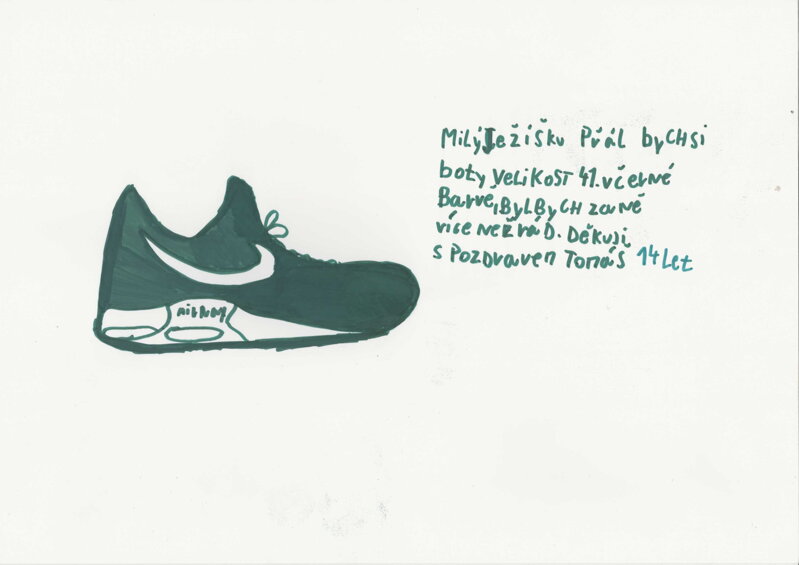 Milý Ježíšku Přál byCH si
boty VeLiKOST 41. včetně
Barvě, ByLByCH za ně
více neŽ rád. Děkuji
s PozDraven Tomáš 14 Let